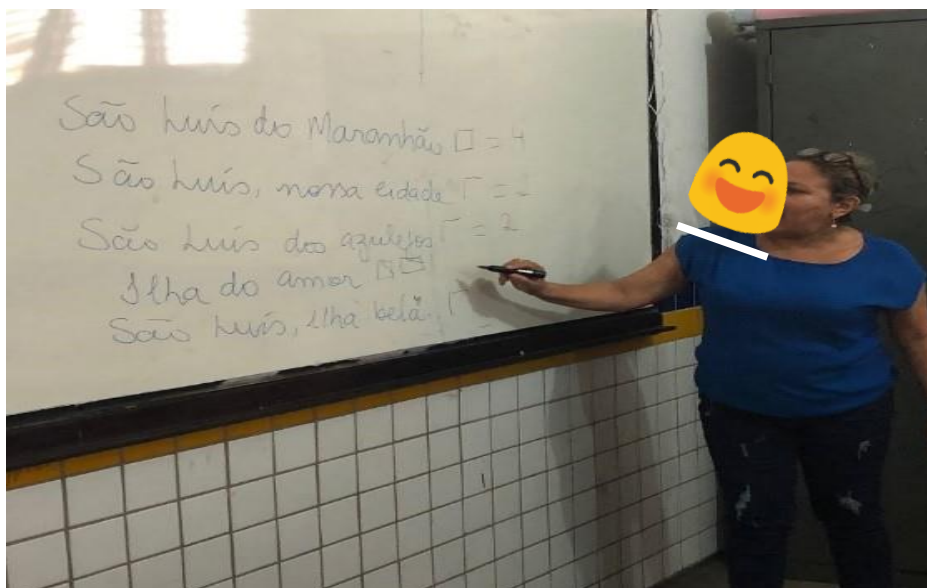 São Luís do Maranhão □ = 4
São Luís, nossa cidade
São Luís dos azulejos = 2
Ilha do amor
São Luís, ilha bela